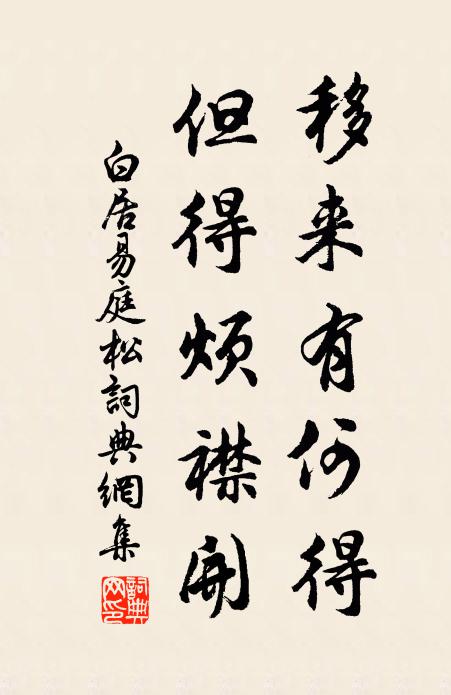 移来有何得
但得烦襟開
白居易庭松詞典網集
詞典網印